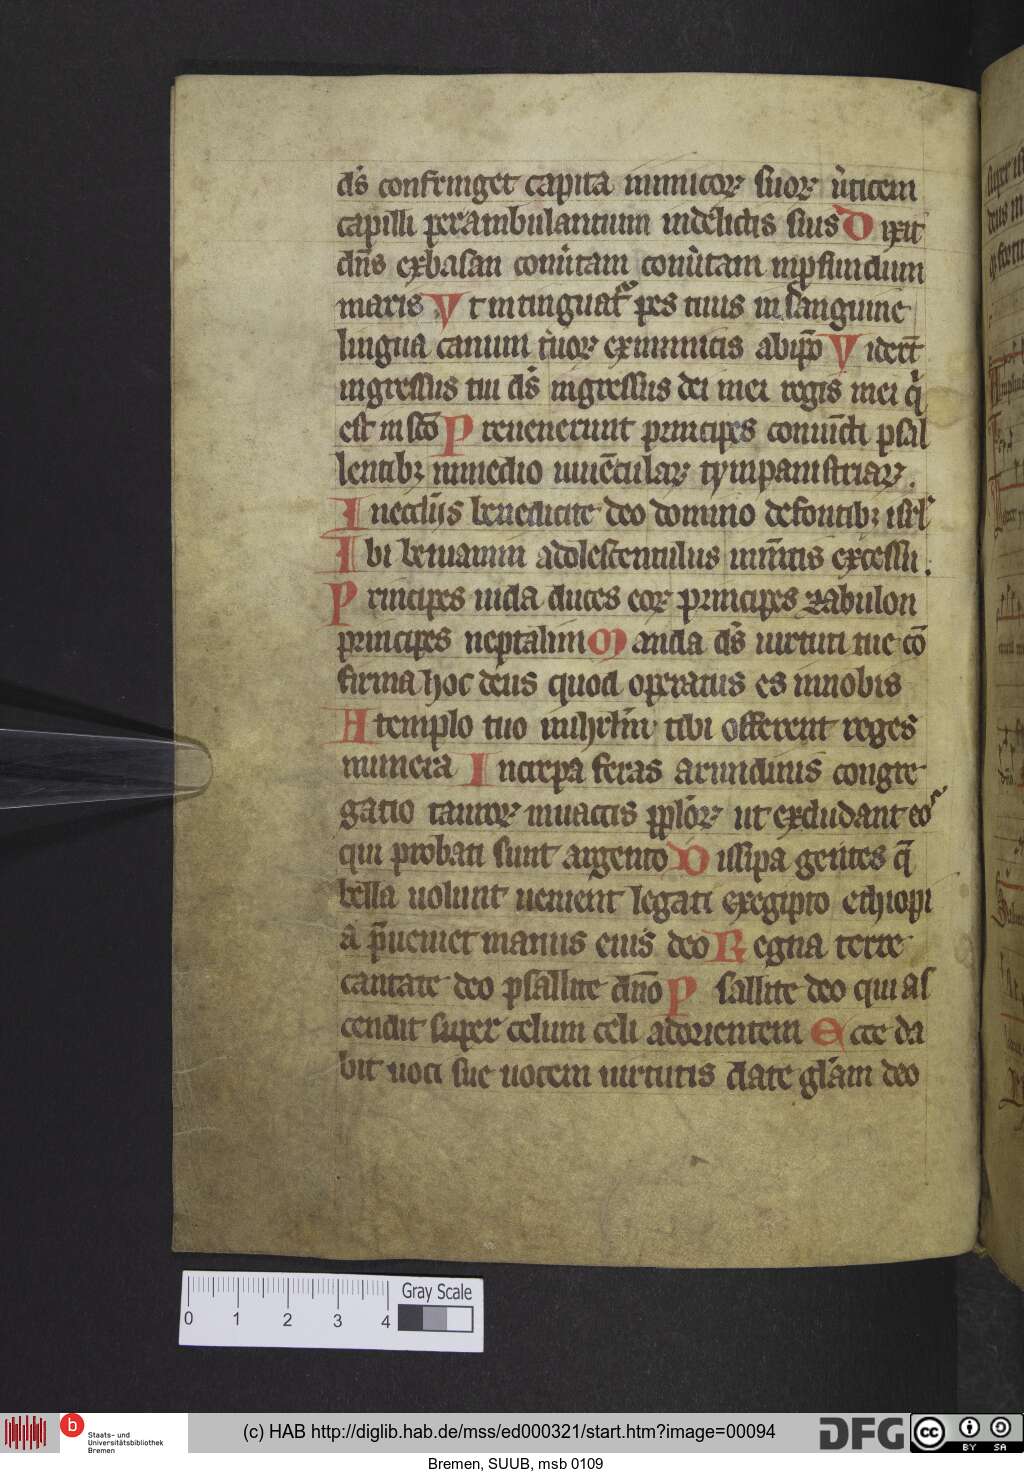 ds̄ confringet capita inimicoꝝ suoꝝ ůticem
capilli perambulantium indelictis suis Dixit
dn̄s exbasan conůtam conůtam inꝓfundum
maris Vt intinguat᷑ pes tuus in sanguine
lingua canum tuoꝝ exinimicis abip̄o Viderūt
ingressus tui ds̄ ingressus dei mei regis mei qͥ
est in sc̄o Preuenerunt principes coniūcti psal
lentibꝫ inmedio iuuēcularꝝ tympanistriaꝝ.
Inecclīis benedicite deo domino defontibꝫ isrl̄
Ibi beniamin adolescentulus inm̄tis excessu.
Principes iuda duces eoꝝ principes zabulon
principes neptalim Manda ds̄ uirtuti tue cō
firma hoc deus quod operatus es innobis
Atemplo tuo inihrl̄m tibi offerent reges
munera Increpa feras arundinis congre
gatio tauroꝝ inuaccis ppl̄oꝝ ut excludant eoˢ
qui probati sunt argento Dissipa gentes q̄
bella uolunt uenient legati exegipto ethiopi
a p̄ueniet manus eius deo Regna terre
cantate deo psallite dn̄o Psallite deo qui as
cendit super celum celi adorientem Ecce da
bit uoci sue uocem uirtutis date glām deo
0 1 2 3 4
Gray Scale
b
Staats- und
Universitätsbibliothek
Bremen
(c) HAB http://diglib.hab.de/mss/ed000321/start.htm?image=00094
DFG
cc BY SA
Bremen, SUUB, msb 0109